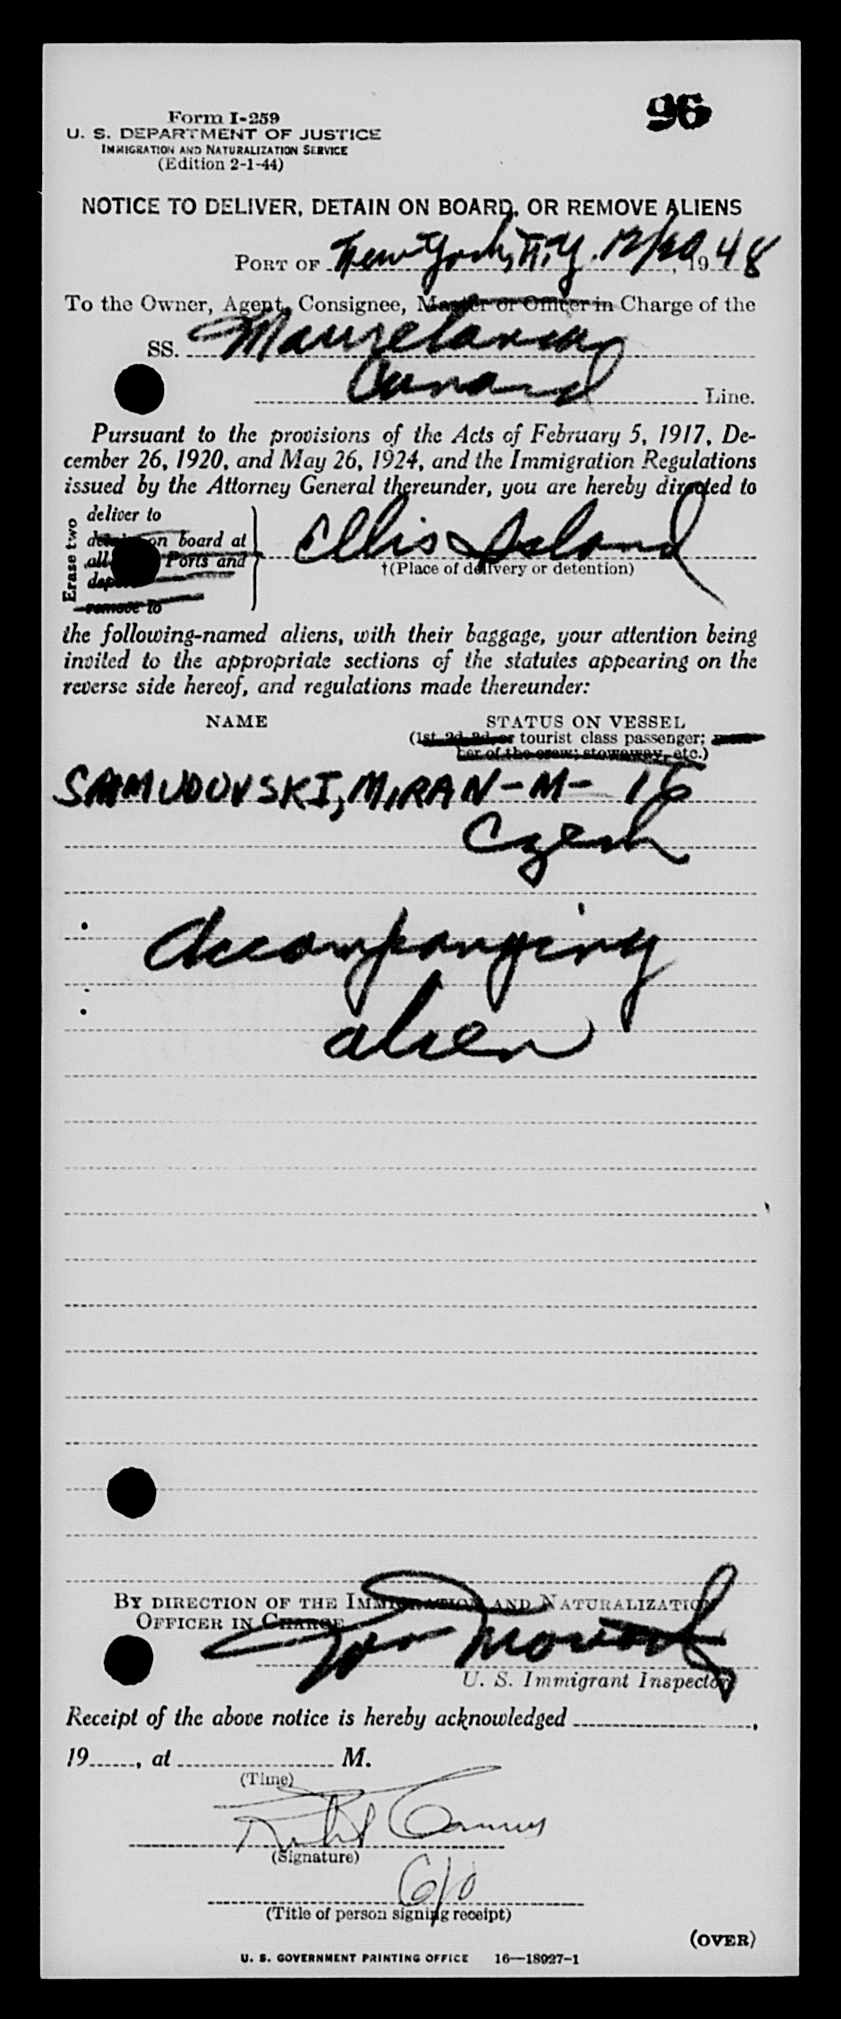 96
Form I-259
U. S. DEPARTMENT OF JUSTICE
IMMIGRATION AND NATURALIZATION SERVICE
(Edition 2-1-44)
NOTICE TO DELIVER, DETAIN ON BOARD, OR REMOVE ALIENS
PORT OF New York, N.Y. 12/20, 1948
To the Owner, Agent, Consignee, Master or Officer in Charge of the
SS. Mauretania
Cunard Line.
Pursuant to the provisions of the Acts of February 5, 1917, De-
cember 26, 1920, and May 26, 1924, and the Immigration Regulations
issued by the Attorney General thereunder, you are hereby directed to
Erase two
deliver to
on board at
all Ports and
remove to
Ellis Island
†(Place of delivery or detention)
the following-named aliens, with their baggage, your attention being
invited to the appropriate sections of the statutes appearing on the
reverse side hereof, and regulations made thereunder:
NAME STATUS ON VESSEL
(1st, 2d, 3d, or tourist class passenger;
ber of the crew; stowaway, etc.)
SAMUDOVSKI, MIRAN - M - 16
Czech
Accompanying
alien
BY DIRECTION OF THE IMMIGRATION AND NATURALIZATION
OFFICER IN CHARGE
U. S. Immigrant Inspector
Receipt of the above notice is hereby acknowledged ,
19 , at M.
(Time)
(Signature)
(Title of person signing receipt)
(OVER)
U. S. GOVERNMENT PRINTING OFFICE 16—18927-1